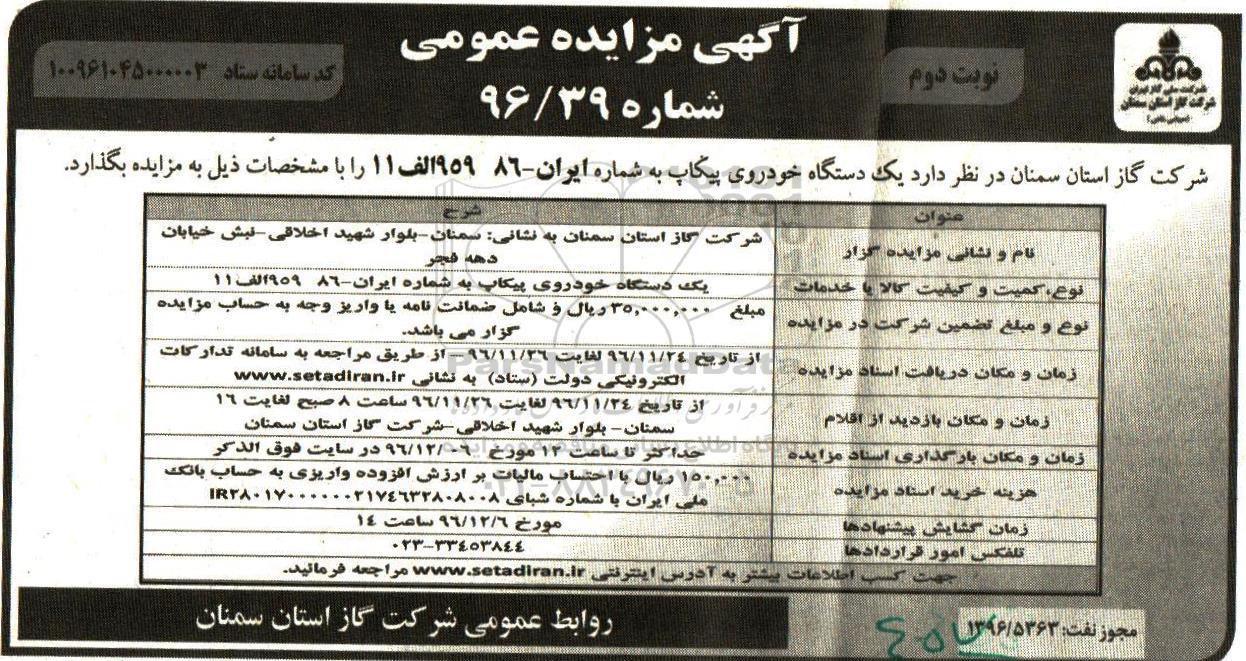 آگهی مزایده عمومی
شماره ۹۶/۳۹
نوبت دوم
کد سامانه ستاد ۱۰۰۹۶۱۰۴۵۰۰۰۰۰۳
شرکت ملی گاز ایران
شرکت گاز استان سمنان
(سهامی خاص)
شرکت گاز استان سمنان در نظر دارد یک دستگاه خودروی پیکاپ به شماره ایران-۸۶ ۹۵۹الف۱۱ را با مشخصات ذیل به مزایده بگذارد.
عنوان شرح
نام و نشانی مزایده گزار شرکت گاز استان سمنان به نشانی: سمنان-بلوار شهید اخلاقی-نبش خیابان
دهه فجر
نوع،کمیت و کیفیت کالا یا خدمات یک دستگاه خودروی پیکاپ به شماره ایران-۸۶ ۹۵۹الف۱۱
نوع و مبلغ تضمین شرکت در مزایده مبلغ ۳۵,۰۰۰,۰۰۰ ریال و شامل ضمانت نامه یا واریز وجه به حساب مزایده
گزار می باشد.
زمان و مکان دریافت اسناد مزایده از تاریخ ۹۶/۱۱/۲۴ لغایت ۹۶/۱۱/۲۶ - از طریق مراجعه به سامانه تدارکات
الکترونیکی دولت (ستاد) به نشانی www.setadiran.ir
زمان و مکان بازدید از اقلام از تاریخ ۹۶/۱۱/۲۴ لغایت ۹۶/۱۱/۲۶ ساعت ۸ صبح لغایت ۱۶
سمنان- بلوار شهید اخلاقی-شرکت گاز استان سمنان
زمان و مکان بارگذاری اسناد مزایده حداکثر تا ساعت ۱۴ مورخ ۹۶/۱۲/۰۶ در سایت فوق الذکر
هزینه خرید اسناد مزایده ۱۵۰,۰۰۰ ریال با احتساب مالیات بر ارزش افزوده واریزی به حساب بانک
ملی ایران با شماره شبای IR۲۸۰۱۷۰۰۰۰۰۰۰۲۱۷۴۶۳۲۸۰۸۰۰۸
زمان گشایش پیشنهادها مورخ ۹۶/۱۲/۶ ساعت ۱۴
تلفکس امور قراردادها ۰۲۳-۳۳۴۵۳۸۴۴
جهت کسب اطلاعات بیشتر به آدرس اینترنتی www.setadiran.ir مراجعه فرمائید.
ParsNamadData
روابط عمومی شرکت گاز استان سمنان
مجوز نفت: ۱۳۹۶/۵۳۶۳